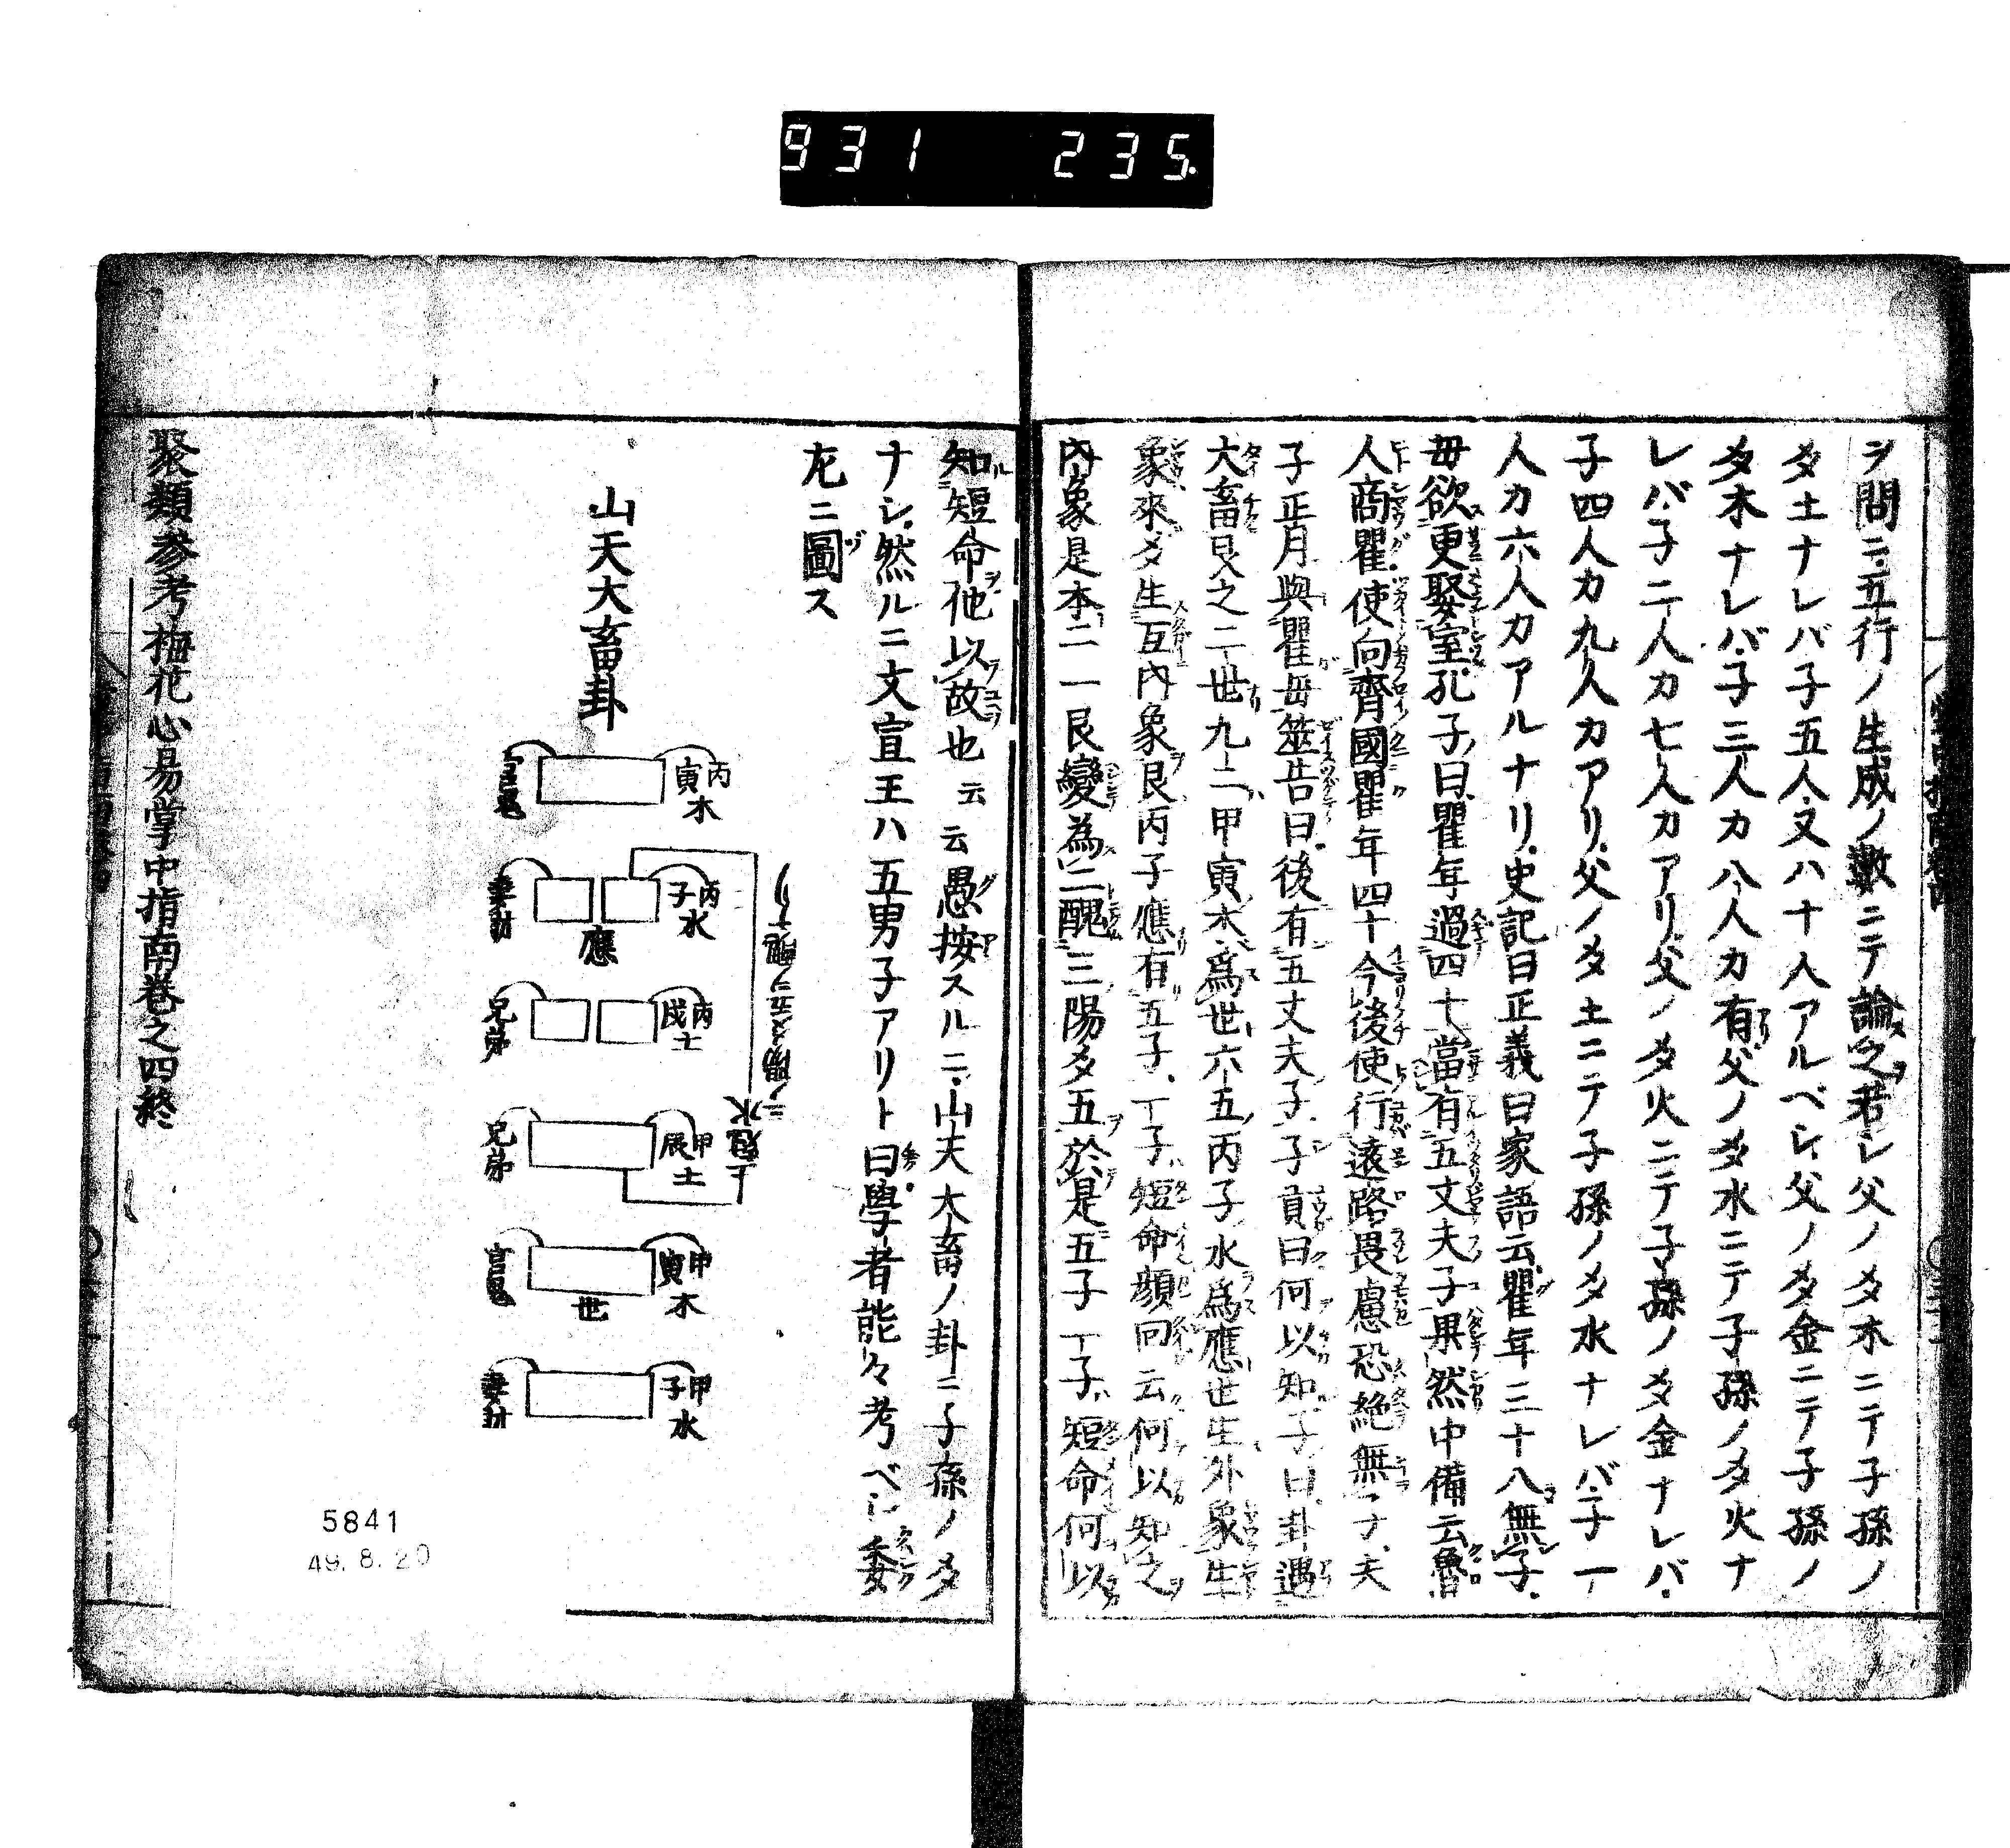 931 235.
ヲ問ニ五行ノ生成ノ數ニテ論之若シ父ノ爻木ニテ子孫ノ
爻土ナレバ子五人又ハ十人アルベシ父ノ爻金ニテ子孫ノ
爻木ナレバ子三人カ八人カ有父ノ爻水ニテ子孫ノ爻火ナ
レバ子二人カ七人カアリ父ノ爻火ニテ子孫ノ爻金ナレバ
子四人カ九人カアリ父ノ爻土ニテ子孫ノ爻水ナレバ子一
人カ六人カアルナリ史記曰正義曰家語云瞿年三十八無子
毋欲更娶室孔子曰瞿年過四十當有五丈夫子果然中備云魯
人商瞿使向齊國瞿年四十今後使行遠路畏慮恐絶無子夫
子正月與瞿毋筮告曰後有五丈夫子子貢曰何以知子曰卦遇
大畜艮之二世九二甲寅木爲世六五丙子水爲應世生外象生
象來爻生互内象艮丙子應有五子一子短命顔回云何以知之
内象是本二一艮變為二醜三陽爻五於是五子一子短命何以
知短命他以故也云云愚按スルニ山天大畜ノ卦ニ子孫ノ爻
ナシ然ルニ文宣王ハ五男子アリト曰學者能々考ベシ委
左ニ圖ス
山天大畜卦
丙寅木 官鬼
丙子水 妻財
應
丙戌土 兄弟
甲辰土 兄弟
甲寅木 官鬼
世
甲子水 妻財
聚類參考梅花心易掌中指南巻之四終
5841
49. 8. 20